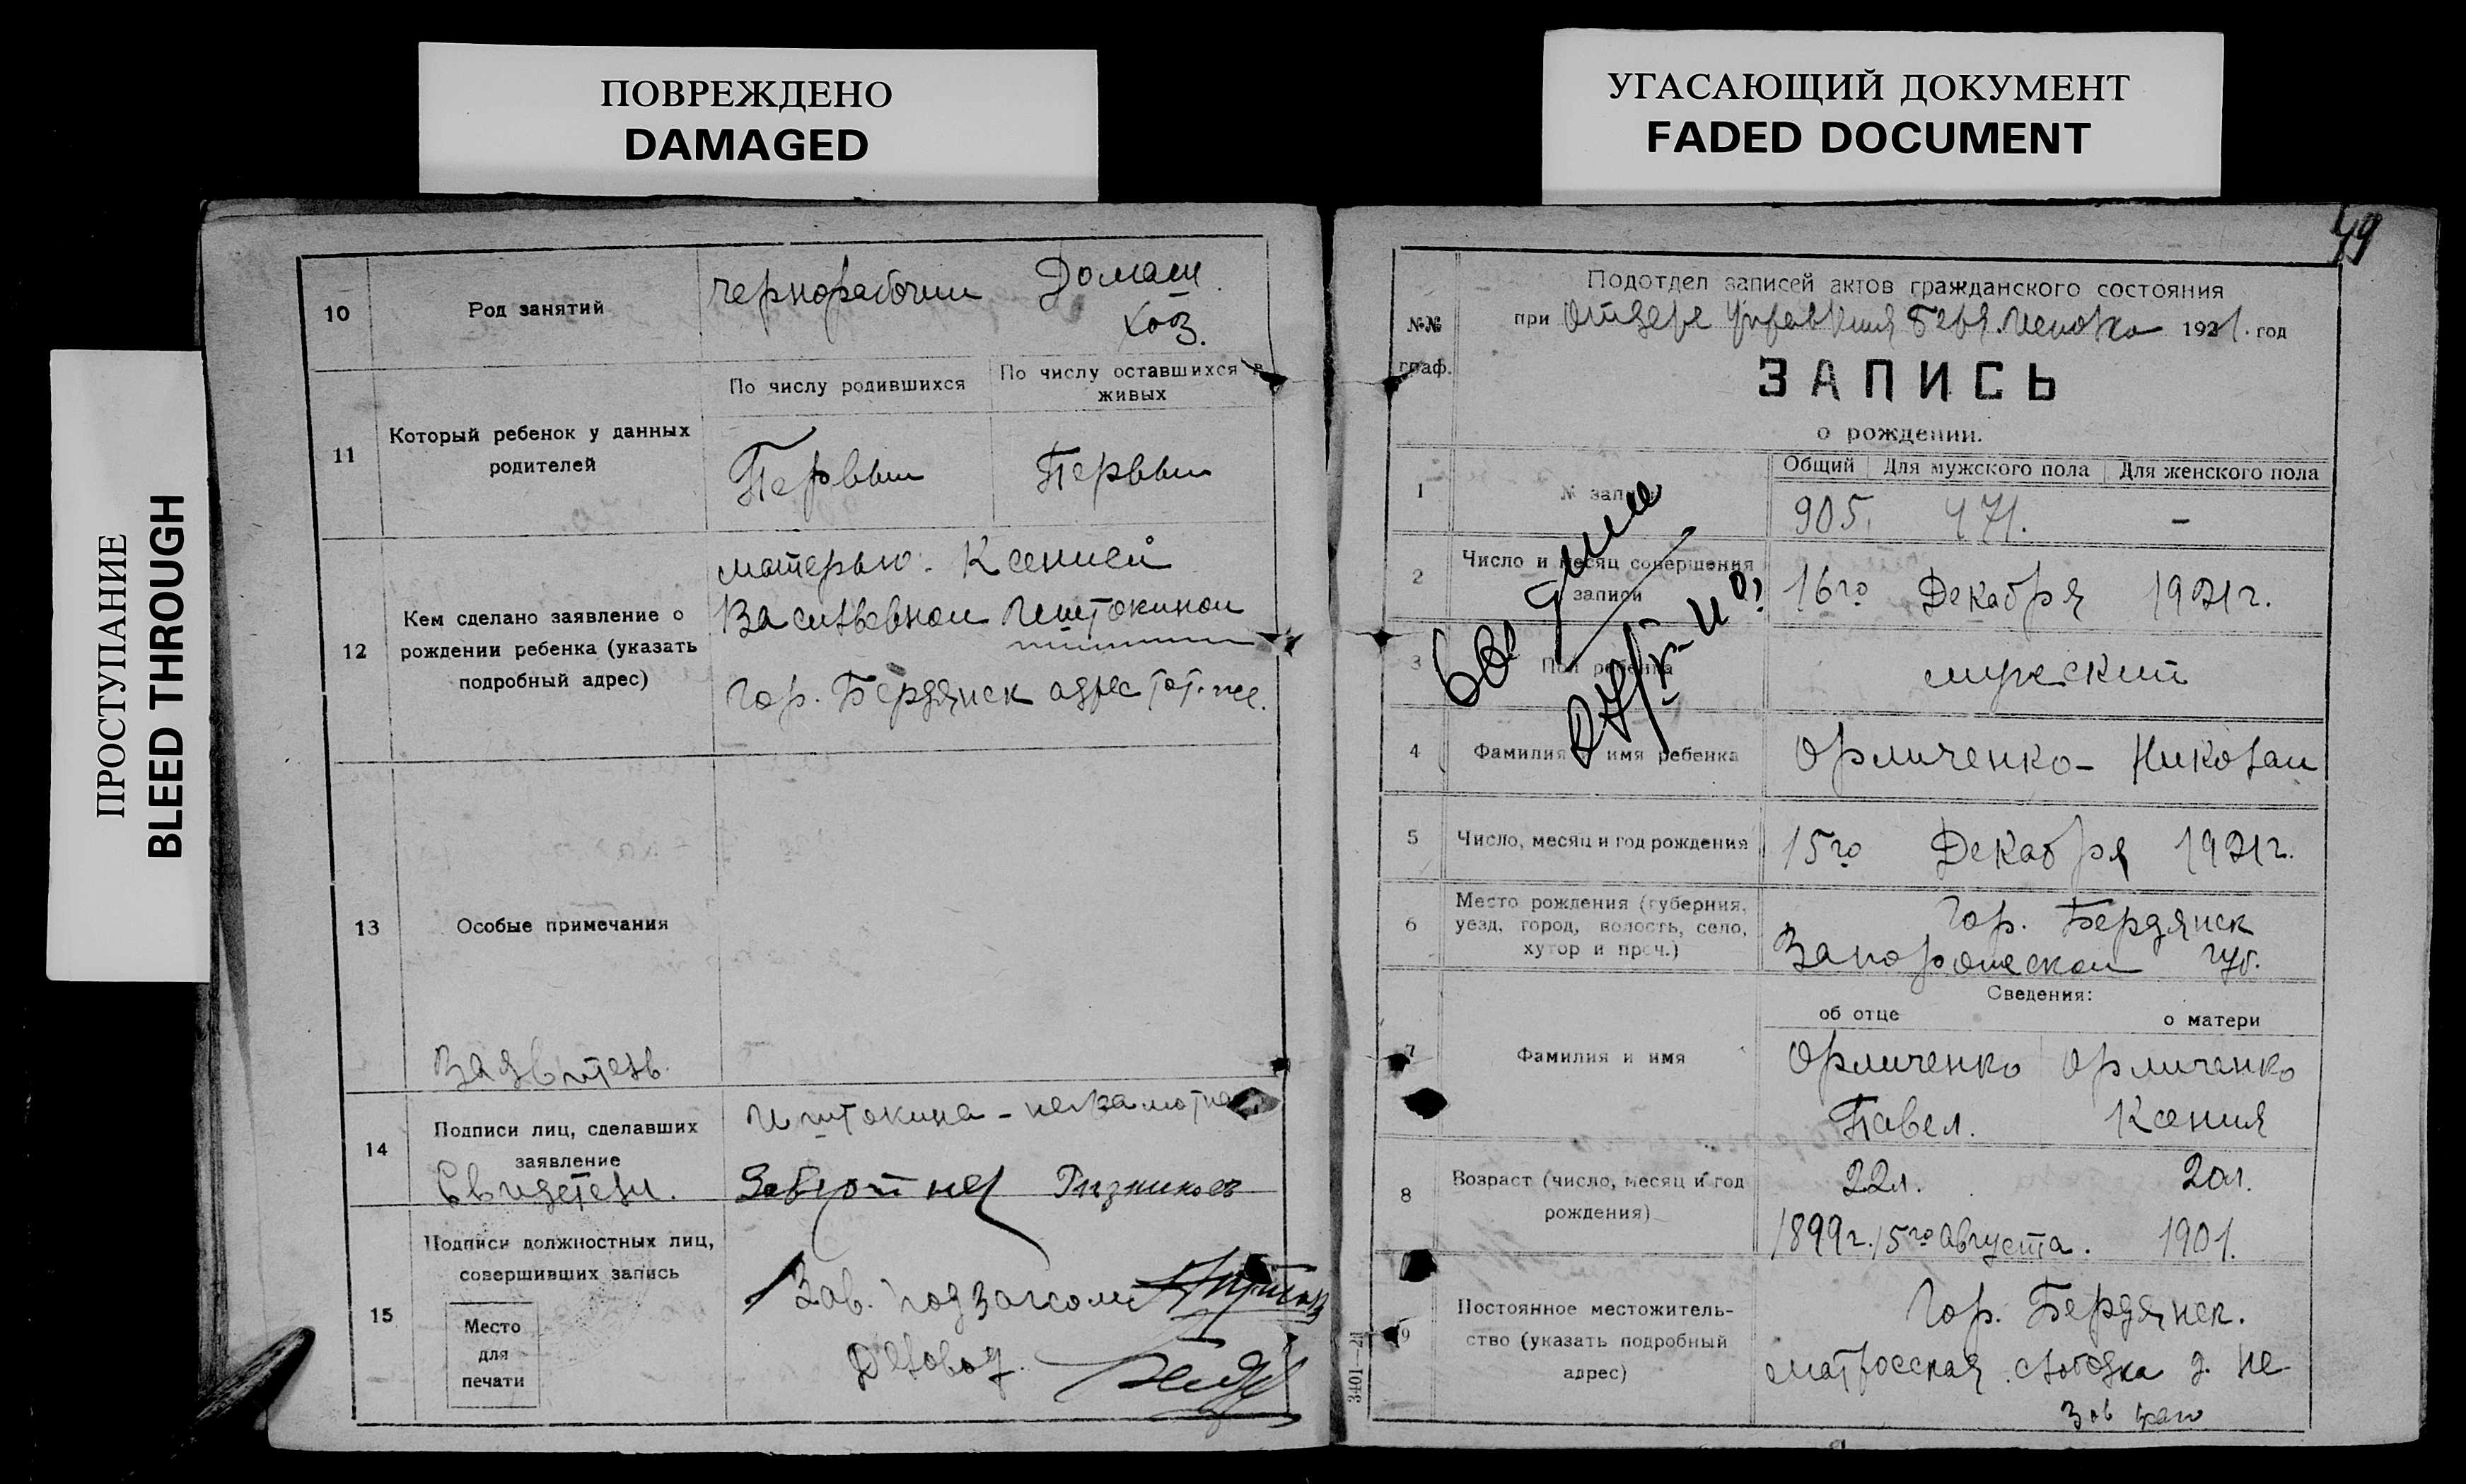 ПОВРЕЖДЕНО
DAMAGED
УГАСАЮЩИЙ ДОКУМЕНТ
FADED DOCUMENT
ПРОСТУПАНИЕ
BLEED THROUGH
10
Род занятий
чернорабочий
Домаш.
хоз.
11
Который ребенок у данных
родителей
По числу родившихся
По числу оставшихся в
живых
Первый
Первый
12
Кем сделано заявление о
рождении ребенка (указать
подробный адрес)
матерью. Ксенией
Васильевной
Гор. Бердянск адрес тот-же.
13
Особые примечания
Заявитель.
14
Подписи лиц, сделавших
заявление
Свидетели.
неграмотна
15
Подписи должностных лиц,
совершивших запись
Место
для
печати
Зав. подзагсом
Деловод.
49
№№
граф.
Подотдел записей актов гражданского состояния
при Отделе Управления 1921. год
ЗАПИСЬ
о рождении.
1
№ записи
Общий
Для мужского пола
Для женского пола
905.
471.
-
2
Число и месяц совершения
записи
16го Декабря 1921г.
3
Пол ребенка
мужский
4
Фамилия и имя ребенка
Орличенко - Николай
5
Число, месяц и год рождения
15го Декабря 1921г.
6
Место рождения (губерния,
уезд, город, волость, село,
хутор и проч.)
Гор. Бердянск
Запорожской губ.
7
Фамилия и имя
Сведения:
об отце
о матери
Орличенко
Орличенко
Павел.
Ксения
8
Возраст (число, месяц и год
рождения)
22л.
20л.
1899г. 15го Августа.
1901.
9
Постоянное местожитель-
ство (указать подробный
адрес)
Гор. Бердянск.
матросская слободка д.